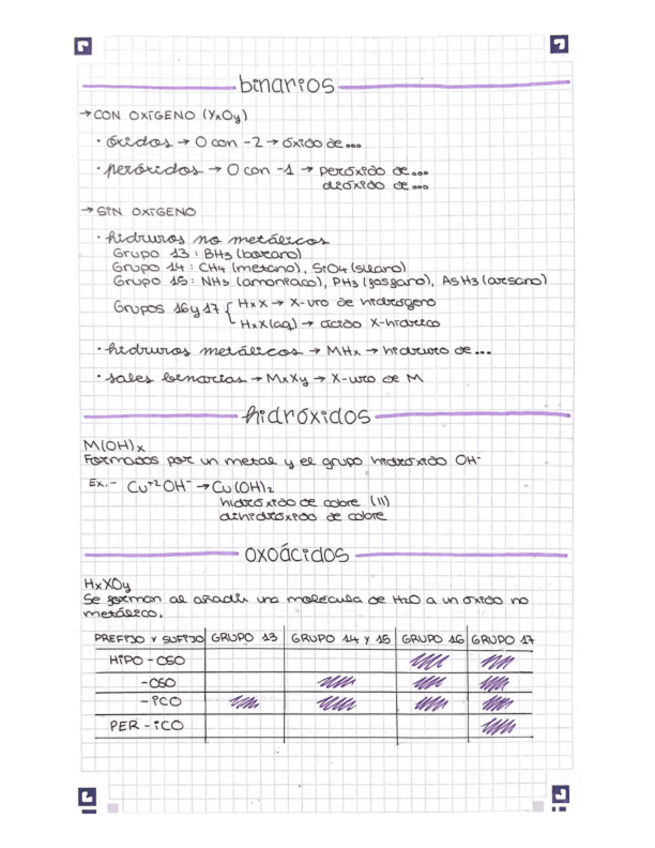 binarios
→ CON OXÍGENO (YxOy)
· óxidos → O con -2 → óxido de...
· peróxidos → O con -1 → peróxido de...
dióxido de...
→ SIN OXÍGENO
· hidruros no metálicos
Grupo 13: BH3 (borano)
Grupo 14: CH4 (metano), SiO4 (silano)
Grupo 15: NH3 (amoniaco), PH3 (fosfano), AsH3 (arsano)
Grupos 16 y 17 { HxX → X-uro de hidrógeno
HxX(aq) → ácido X-hídrico
· hidruros metálicos → MHx → hidruro de...
· sales binarias → MxXy → X-uro de M
hidróxidos
M(OH)x
Formados por un metal y el grupo hidróxido OH⁻
Ex.- Cu⁺² OH⁻ → Cu(OH)2
hidróxido de cobre (II)
dihidróxido de cobre
oxoácidos
HxXOy
Se forman al añadir una molécula de H2O a un óxido no
metálico.
PREFIJO Y SUFIJO GRUPO 13 GRUPO 14 Y 15 GRUPO 16 GRUPO 17
HIPO - OSO
-OSO
-ICO
PER - ICO